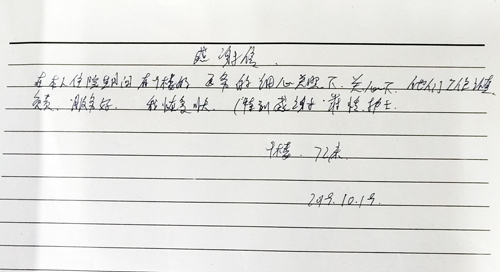 感谢信
在本人住院期间在9楼的医务的细心关照下、关心下、他们工作认真
负责，服务好。我恢复快。(特别感谢 护士
9楼、72床
2019.10.19.